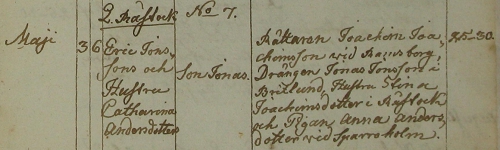 Q. Råflock No 7.
Maji 3 6 Eric Jons-
sons och
Hustru
Catharina
Andersdotters
son Jonas.
Rättaren Joachim Joa-
chimsson vid Ramsborg,
Drängen Jonas Jonsson i
Britlund, Hustru Stina
Joachimsdotter i Råflock
och Pigan Anna Anders-
dotter vid Sparreholm.
25-30.